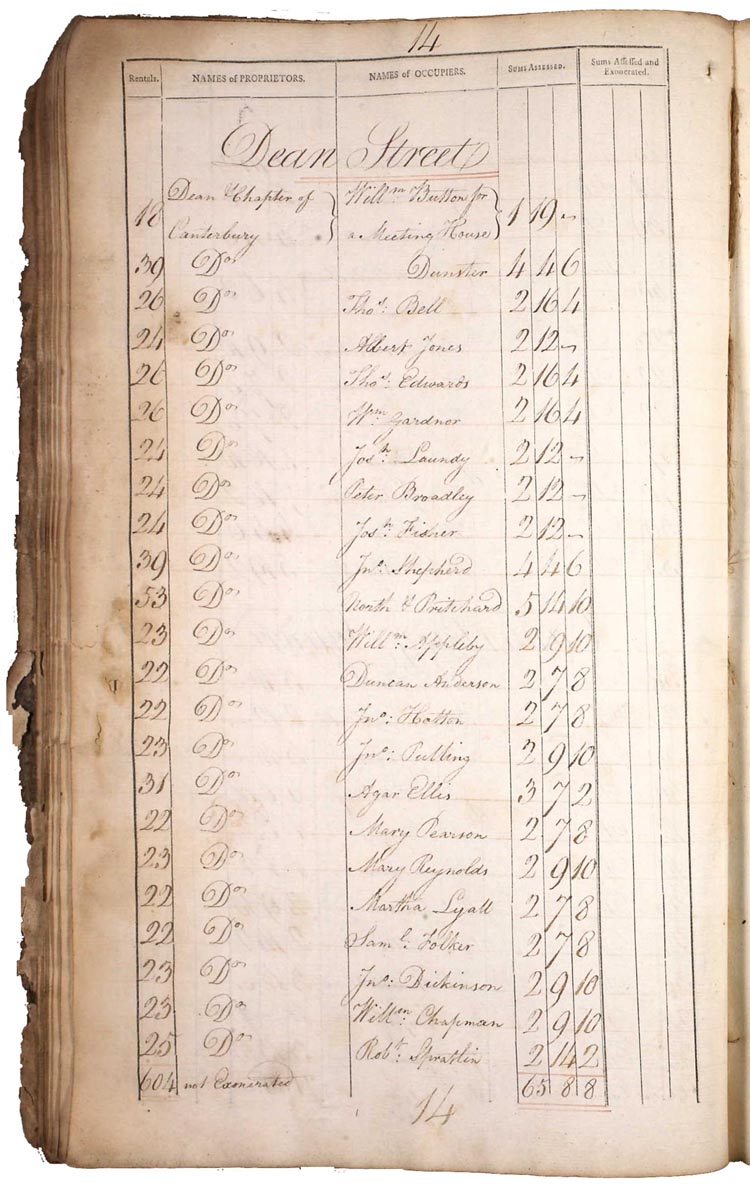 14
Rentals. NAMES of PROPRIETORS. NAMES of OCCUPIERS. SUMS ASSESSED. Sums Assessed and Exonerated.
Dean Street
18 Dean & Chapter of Canterbury Willm Button for a Meeting House 1 19 -
39 Do Dunster 4 4 6
26 Do Thos: Bell 2 16 4
24 Do Albert Jones 2 12 -
26 Do Thos: Edwards 2 16 4
26 Do Wm Gardner 2 16 4
24 Do Josh: Laundy 2 12 -
24 Do Peter Broadley 2 12 -
24 Do Josh: Fisher 2 12 -
39 Do Jno: Shepherd 4 4 6
53 Do North & Pritchard 5 14 10
23 Do Willm: Appleby 2 9 10
22 Do Duncan Anderson 2 7 8
22 Do Jno: Hotton 2 7 8
23 Do Jno: Pulling 2 9 10
31 Do Agar Ellis 3 7 2
22 Do Mary Pearson 2 7 8
23 Do Mary Reynolds 2 9 10
22 Do Martha Lyall 2 7 8
22 Do Saml: Folker 2 7 8
23 Do Jno: Dickinson 2 9 10
23 Do Willm: Chapman 2 9 10
25 Do Robt: Spratlin 2 14 2
604 not Exonerated 65 8 8
14